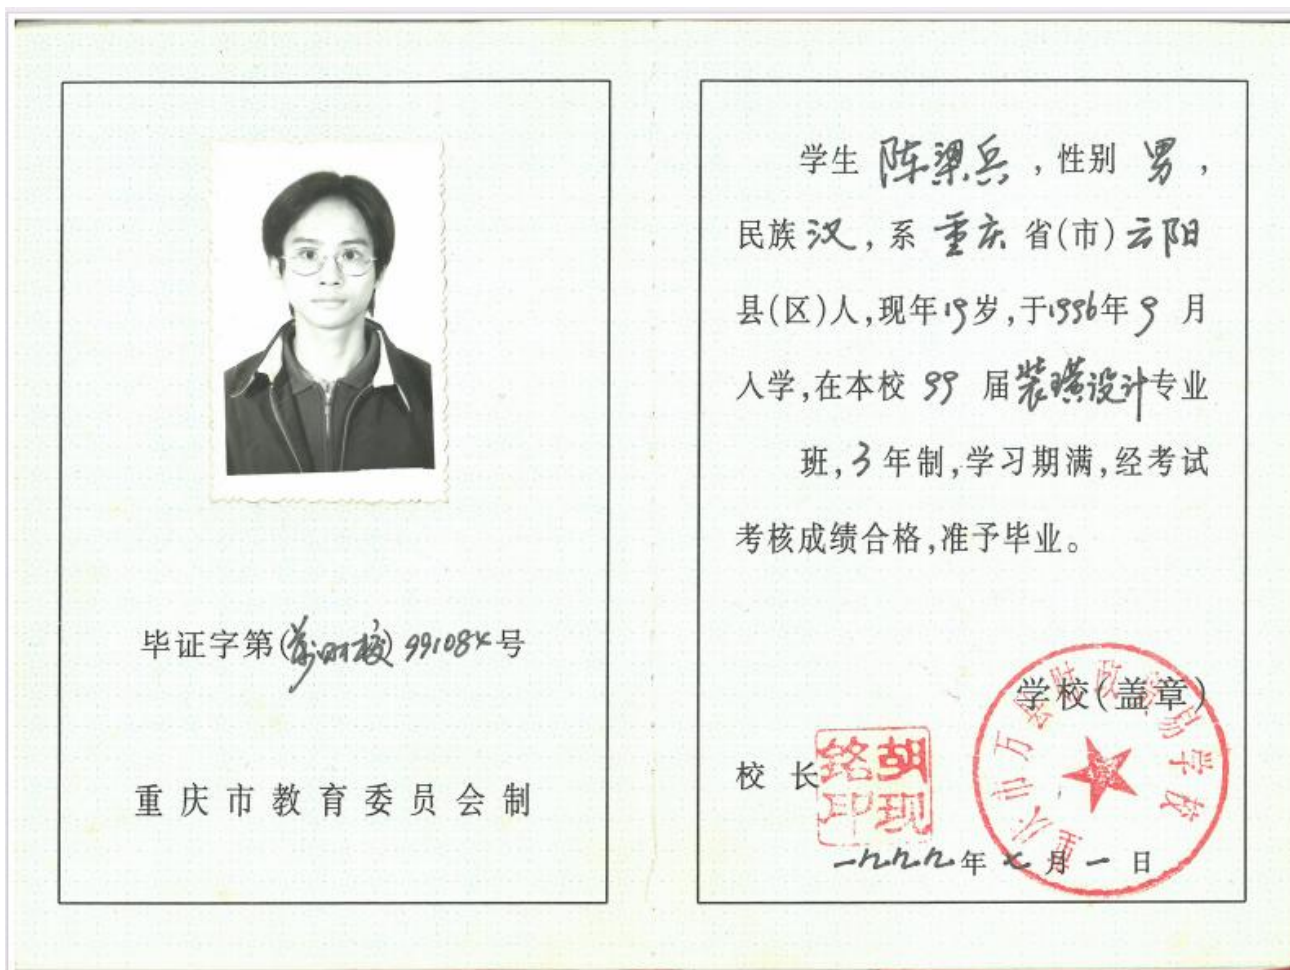 毕证字第(万财校)991084号
重庆市教育委员会制
学生 陈梁兵,性别 男,
民族 汉,系 重庆 省(市)云阳
县(区)人,现年19岁,于1996年9月
入学,在本校 99 届装璜设计专业
班,3年制,学习期满,经考试
考核成绩合格,准予毕业。
学校(盖章)
重庆市万县财政贸易学校
校 长
胡现铭印
一九九九年七月一日